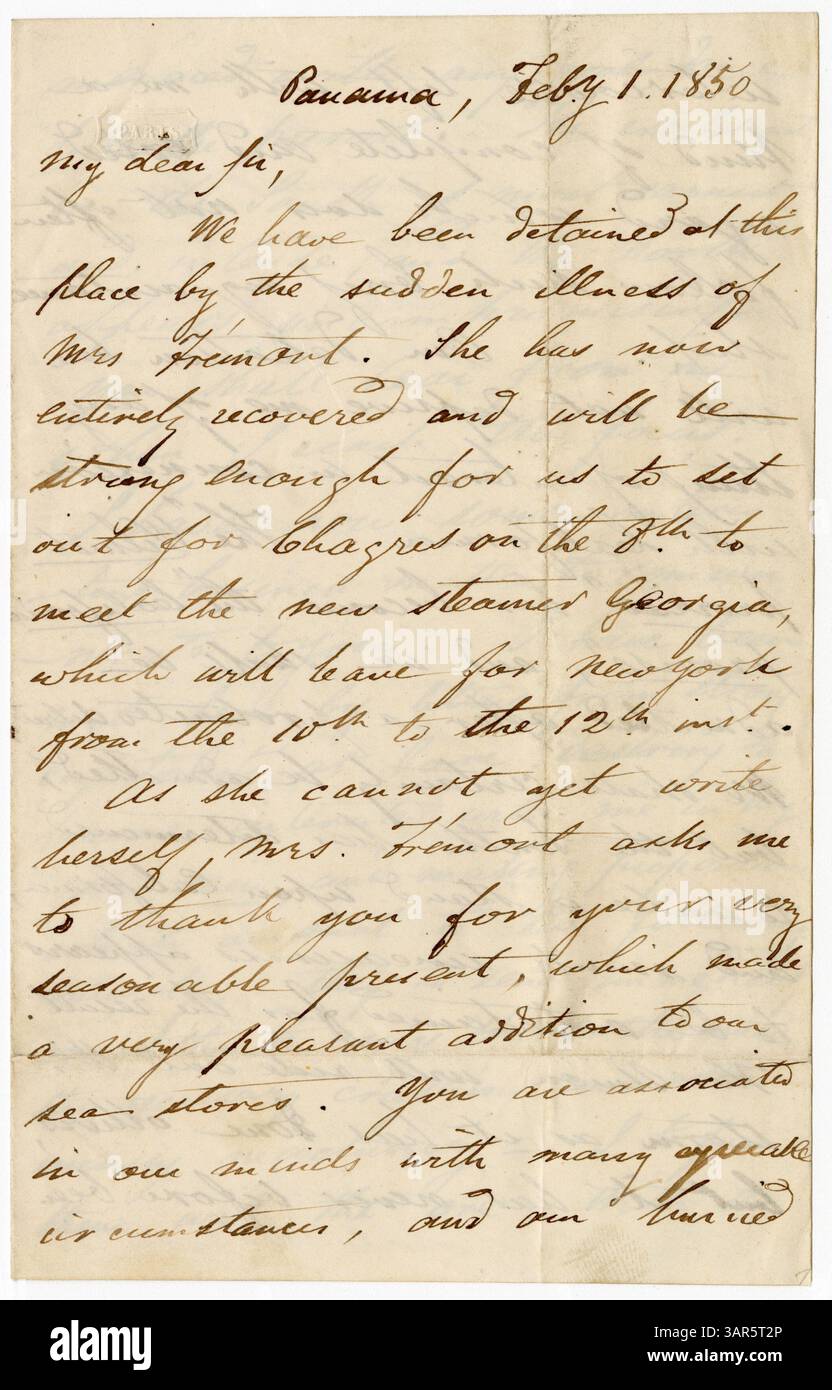 Panama, Feby 1. 1850
PARIS
My dear Sir,
We have been detained at this
place by the sudden illness of
Mrs Frémont. She has now
entirely recovered and will be
strong enough for us to set
out for Chagres on the 8th to
meet the new steamer Georgia,
which will leave for New York
from the 10th to the 12th inst.
As she cannot yet write
herself, Mrs. Frémont asks me
to thank you for your very
seasonable present, which made
a very pleasant addition to our
sea stores. You are associated
in our minds with many agreeable
circumstances, and our hurried
alamy
Image ID: 3AR5T2P
www.alamy.com